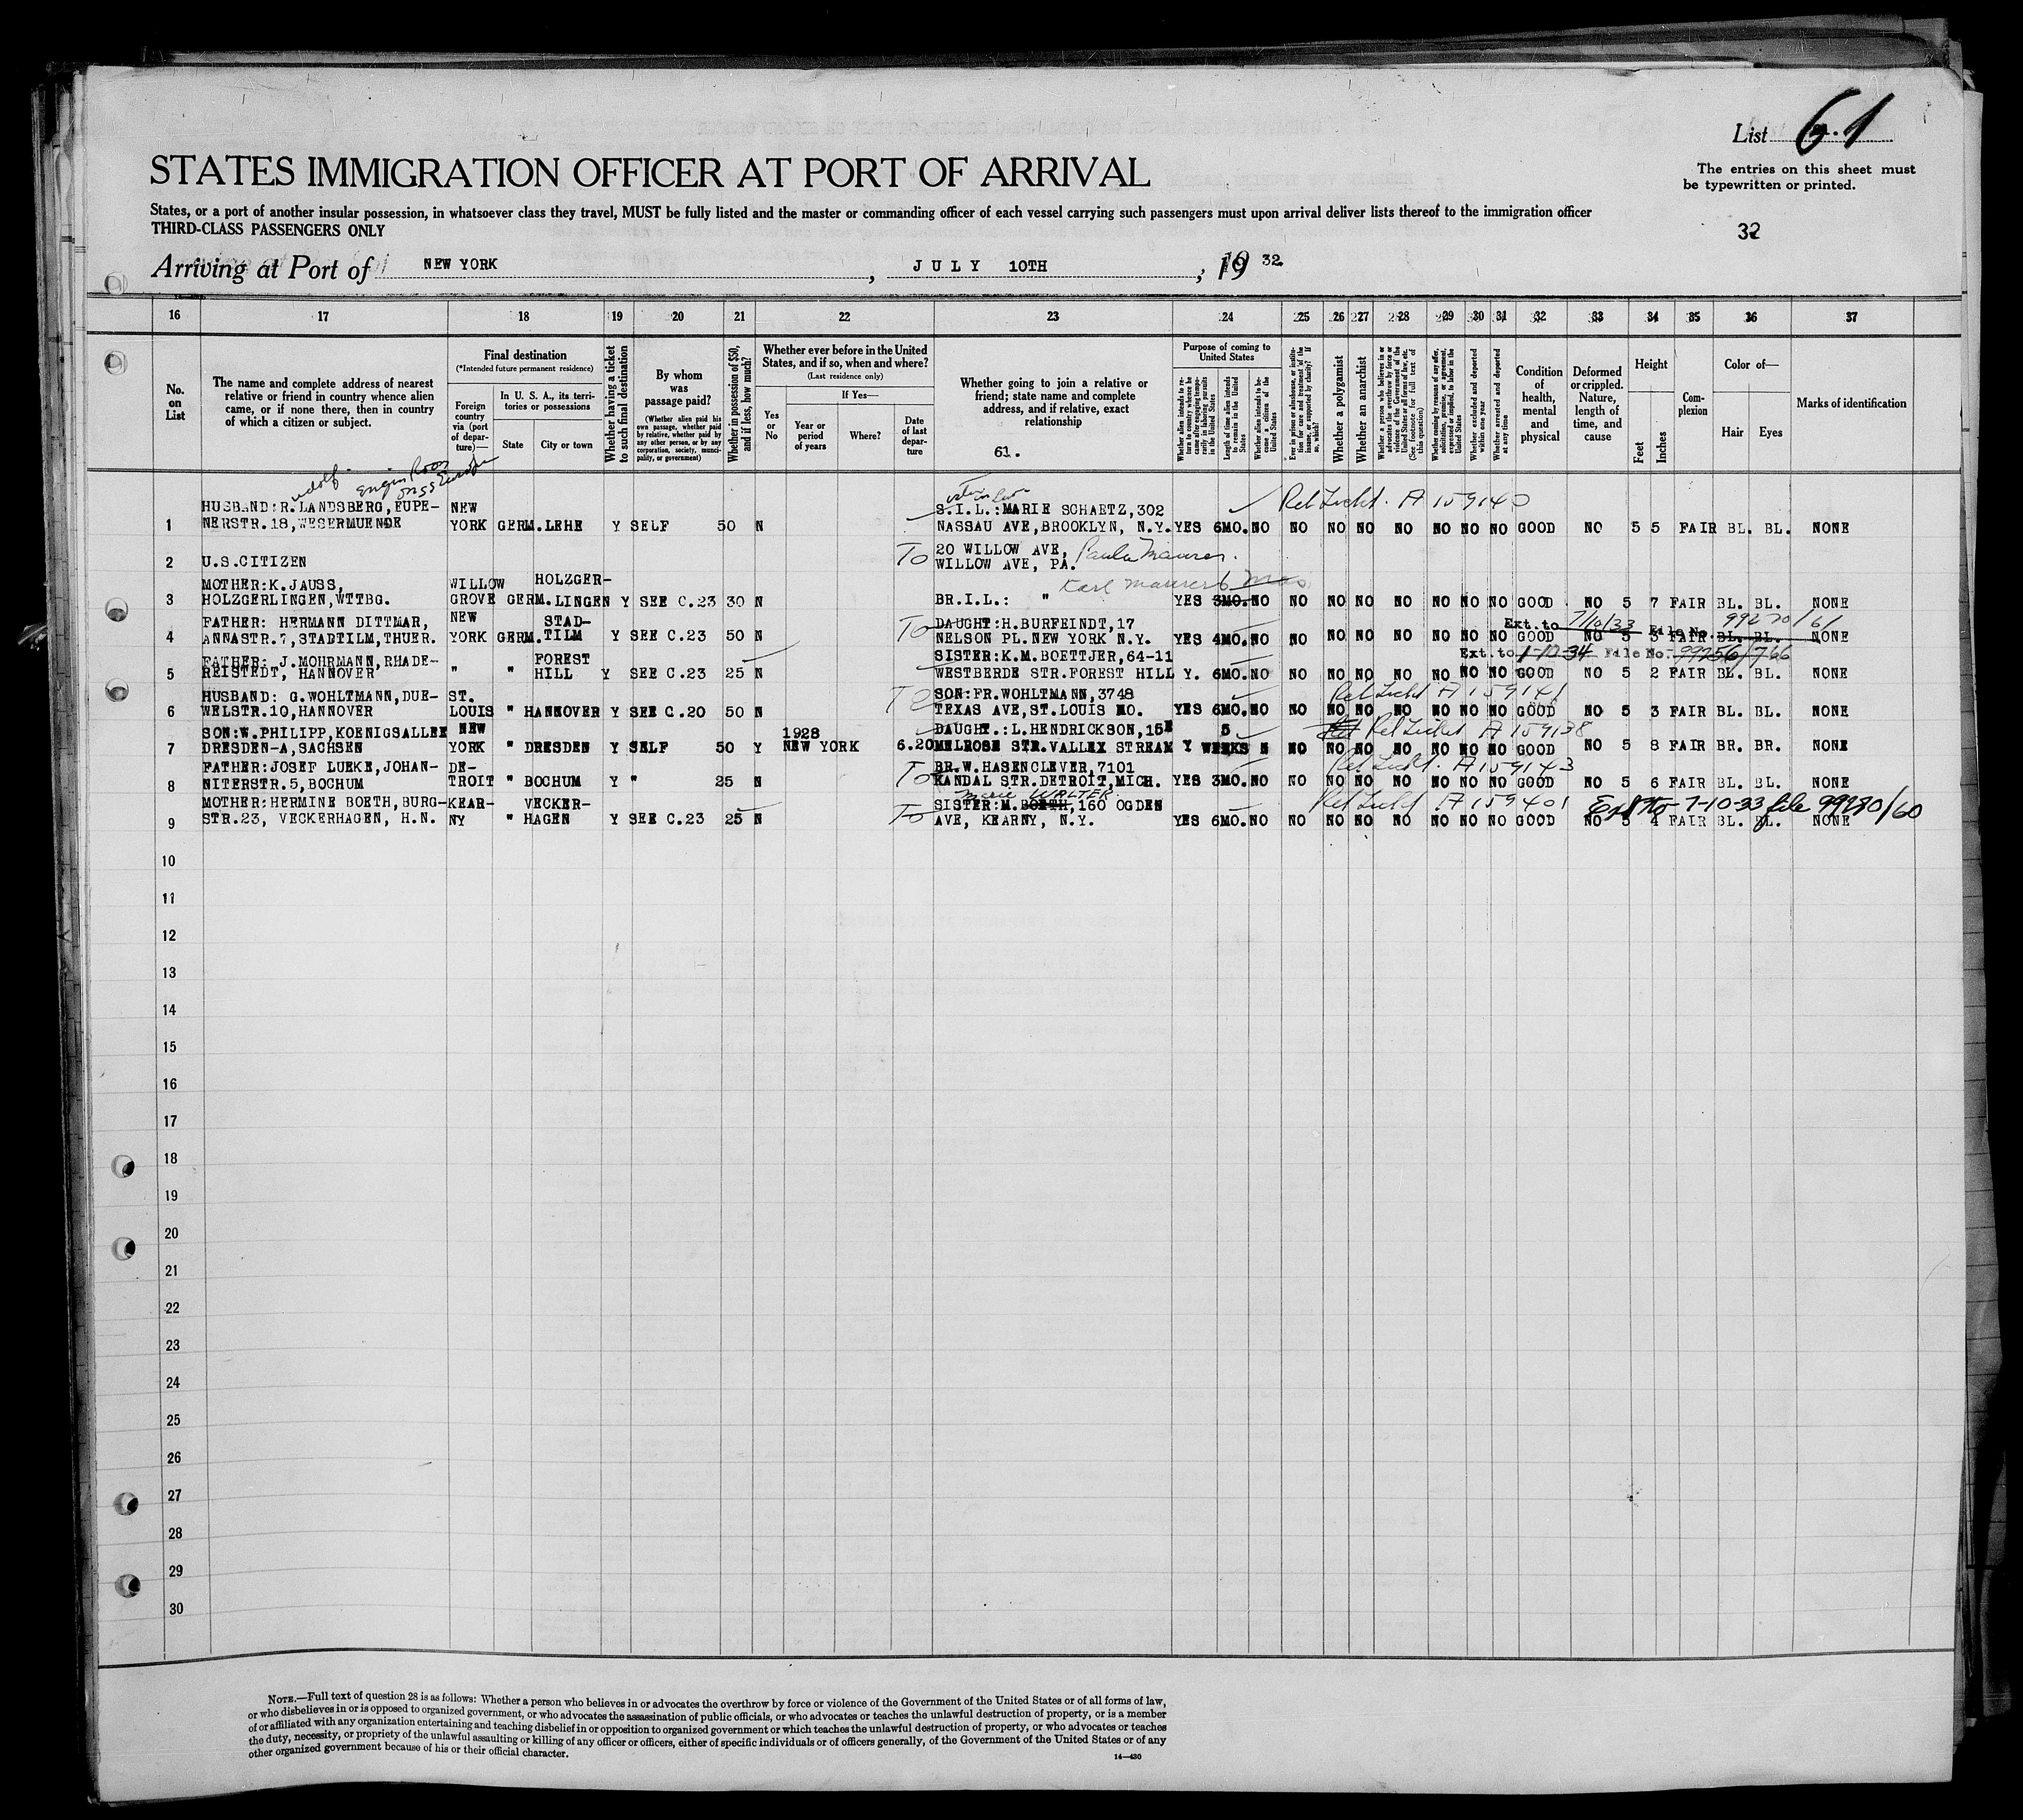 List 61
STATES IMMIGRATION OFFICER AT PORT OF ARRIVAL
The entries on this sheet must
be typewritten or printed.
States, or a port of another insular possession, in whatsoever class they travel, MUST be fully listed and the master or commanding officer of each vessel carrying such passengers must upon arrival deliver lists thereof to the immigration officer
THIRD-CLASS PASSENGERS ONLY
32
Arriving at Port of NEW YORK, JULY 10TH, 19 32
16 17 18 19 20 21 22 23 24 25 26 27 28 29 30 31 32 33 34 35 36 37
No.
on
List
The name and complete address of nearest
relative or friend in country whence alien
came, or if none there, then in country
of which a citizen or subject.
Final destination
(*Intended future permanent residence)
Foreign
country
via (port
of depar-
ture)—
In U. S. A., its terri-
tories or possessions
State
City or town
Whether having a ticket
to such final destination
By whom
was
passage paid?
(Whether alien paid his
own passage, whether paid
by relative, whether paid by
any other person, or by any
corporation, society, munici-
pality, or government)
Whether in possession of $50,
and if less, how much?
Whether ever before in the United
States, and if so, when and where?
(Last residence only)
Yes
or
No
If Yes—
Year or
period
of years
Where?
Date
of last
depar-
ture
Whether going to join a relative or
friend; state name and complete
address, and if relative, exact
relationship
61.
Purpose of coming to
United States
Whether alien intends to re-
turn to country whence he
came after engaging tempo-
rarily in laboring pursuits
in the United States
Length of time alien intends
to remain in the United
States
Whether alien intends to be-
come a citizen of the
United States
Ever in prison or almshouse, or institu-
tion for care and treatment of the
insane, or supported by charity? If
so, which?
Whether a polygamist
Whether an anarchist
Whether a person who believes in or
advocates the overthrow by force or
violence of the Government of the
United States or all forms of law, etc.
(See footnote for full text of
this question)
Whether coming by reasons of any offer,
solicitation, promise, or agreement,
expressed or implied, to labor in the
United States
Whether excluded and deported
within one year
Whether arrested and deported
at any time
Condition
of
health,
mental
and
physical
Deformed
or crippled.
Nature,
length of
time, and
cause
Height
Feet
Inches
Com-
plexion
Color of—
Hair
Eyes
Marks of identification
Adolf Engin Room
on SS Europa
sister in law Rel Ticket A 159140
HUSBAND:R.LANDSBERG,EUPE- NEW S.I.L.:MARIE SCHAETZ,302
1 NERSTR.18,WESERMUENDE YORK GERM.LEHE Y SELF 50 N NASSAU AVE,BROOKLYN, N.Y. YES 6MO. NO NO NO NO NO NO NO NO GOOD NO 5 5 FAIR BL. BL. NONE
To 20 WILLOW AVE, Paula Maurer.
2 U.S.CITIZEN WILLOW AVE, PA.
Karl Maurer 6 mos
MOTHER:K.JAUSS, WILLOW HOLZGER-
3 HOLZGERLINGEN,WTTBG. GROVE GERM.LINGEN Y SEE C.23 30 N BR.I.L.: " YES 3MO. NO NO NO NO NO NO NO NO GOOD NO 5 7 FAIR BL. BL. NONE
FATHER: HERMANN DITTMAR, NEW STAD- To DAUGHT:H.BURFEINDT,17 Ext. to 7/10/33 File No. 99270/61
4 ANNASTR.7,STADTILM,THUER. YORK GERM.TILM Y SEE C.23 50 N NELSON PL.NEW YORK N.Y. YES 4MO. NO NO NO NO NO NO NO NO GOOD NO 5 3 FAIR BL. BL. NONE
FATHER: J.MOHRMANN,RHADE- FOREST SISTER:K.M.BOETTJER,64-11 Ext. to 1-10-34 File No. 99256/766
5 REISTEDT, HANNOVER " " HILL Y SEE C.23 25 N WESTBERDE STR.FOREST HILL Y. 6MO. NO NO NO NO NO NO NO NO GOOD NO 5 2 FAIR BL. BL. NONE
HUSBAND: G.WOHLTMANN,DUE- ST. To SON:FR.WOHLTMANN,3748 Rel Ticket A 159141
6 WELSTR.10,HANNOVER LOUIS " HANNOVER Y SEE C.20 50 N TEXAS AVE,ST.LOUIS MO. YES 6MO. NO NO NO NO NO NO NO NO GOOD NO 5 3 FAIR BL. BL. NONE
SON:W.PHILIPP,KOENIGSALLEE NEW 1928 DAUGHT.:L.HENDRICKSON,15 5 Rel Ticket A 159138
7 DRESDEN-A,SACHSEN YORK " DRESDEN Y SELF 50 Y NEW YORK 6.20 MELROSE STR.VALLEX STREAM Y WEEKS N NO NO NO NO NO NO NO GOOD NO 5 8 FAIR BR. BR. NONE
FATHER:JOSEF LUEKE,JOHAN- DE- BR.W.HASENCLEVER,7101 Rel Ticket A 159143
8 NITERSTR.5,BOCHUM TROIT " BOCHUM Y " 25 N To KANDAL STR.DETROIT,MICH. YES 3MO. NO NO NO NO NO NO NO NO GOOD NO 5 6 FAIR BL. BL. NONE
Marie WALTER
MOTHER:HERMINE BOETH,BURG- KEAR- VECKER- SISTER:M.BOETH,160 OGDEN Rel Ticket A 159401 Ext to 7-10-33 file 99270/60
9 STR.23, VECKERHAGEN, H.N. NY " HAGEN Y SEE C.23 25 N To AVE, KEARNY, N.Y. YES 6MO. NO NO NO NO NO NO NO NO GOOD NO 5 4 FAIR BL. BL. NONE
10
11
12
13
14
15
16
17
18
19
20
21
22
23
24
25
26
27
28
29
30
NOTE.—Full text of question 28 is as follows: Whether a person who believes in or advocates the overthrow by force or violence of the Government of the United States or of all forms of law,
or who disbelieves in or is opposed to organized government, or who advocates the assassination of public officials, or who advocates or teaches the unlawful destruction of property, or is a member
of or affiliated with any organization entertaining and teaching disbelief in or opposition to organized government or which teaches the unlawful destruction of property, or who advocates or teaches
the duty, necessity, or propriety of the unlawful assaulting or killing of any officer or officers, either of specific individuals or of officers generally, of the Government of the United States or of any
other organized government because of his or their official character.
14—430